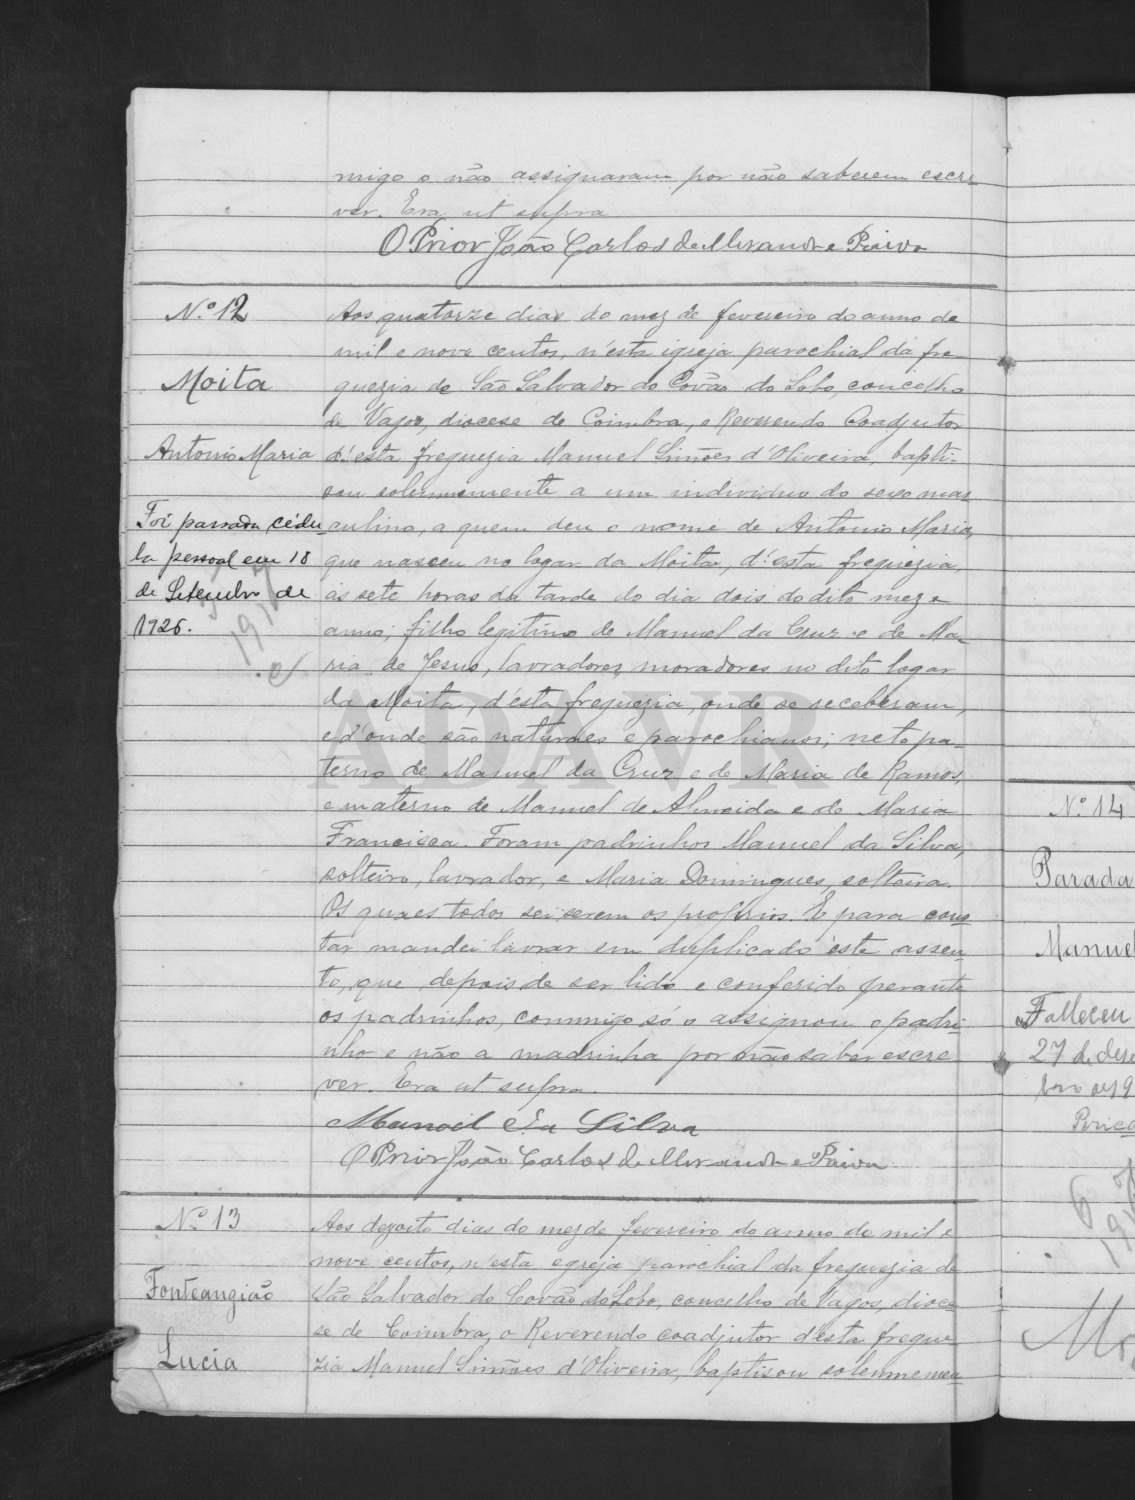 migo o não assignaram por não saberem escre
ver. Era ut supra
O Prior João Carlos de Miranda e Paiva
Nº 12
Moita
Antonio Maria
Foi passada cédu
la pessoal em 18
de Setembro de
1926.
Aos quatorze dias do mez de fevereiro do anno de
mil e nove centos, n'esta igreja parochial da fre
guezia de São Salvador do Covão do Lobo, concelho
de Vagos, diocese de Coimbra, o Reverendo Coadjutor
d'esta freguezia Manuel Simões d'Oliveira, bapti-
sou solemnemente a um individuo do sexo mas
culino, a quem deu o nome de Antonio Maria,
que nasceu no logar da Moita, d'esta freguezia,
ás sete horas da tarde do dia dois do dito mez e
anno; filho legitimo de Manuel da Cruz e de Ma-
ria de Jesus, lavradores, moradores no dito logar
da Moita, d'esta freguezia, onde se receberam,
e d'onde são naturaes e parochianos; neto pa-
terno de Manuel da Cruz e de Maria de Ramos,
e materno de Manuel de Almeida e de Maria
Francisca. Foram padrinhos Manuel da Silva,
solteiro, lavrador, e Maria Domingues, solteira.
Os quaes todos sei serem os proprios. E para cons
tar mandei lavrar em duplicado este assen
to, que, depois de ser lido e conferido perante
os padrinhos, commigo só o assignou o padri-
nho e não a madrinha por não saber escre
ver. Era ut supra.
Manoel da Silva
O Prior João Carlos de Miranda e Paiva
Nº 13
Fonteangião
Lucia
Aos dezoito dias do mez de fevereiro do anno de mil e
nove centos, n'esta egreja parochial da freguezia de
São Salvador do Covão do Lobo, concelho de Vagos, dioce-
se de Coimbra, o Reverendo coadjutor d'esta fregue
zia Manuel Simões d'Oliveira, baptisou solemnemen
Nº 14
Parada
Manuel
Falleceu
27 de
ADAVR